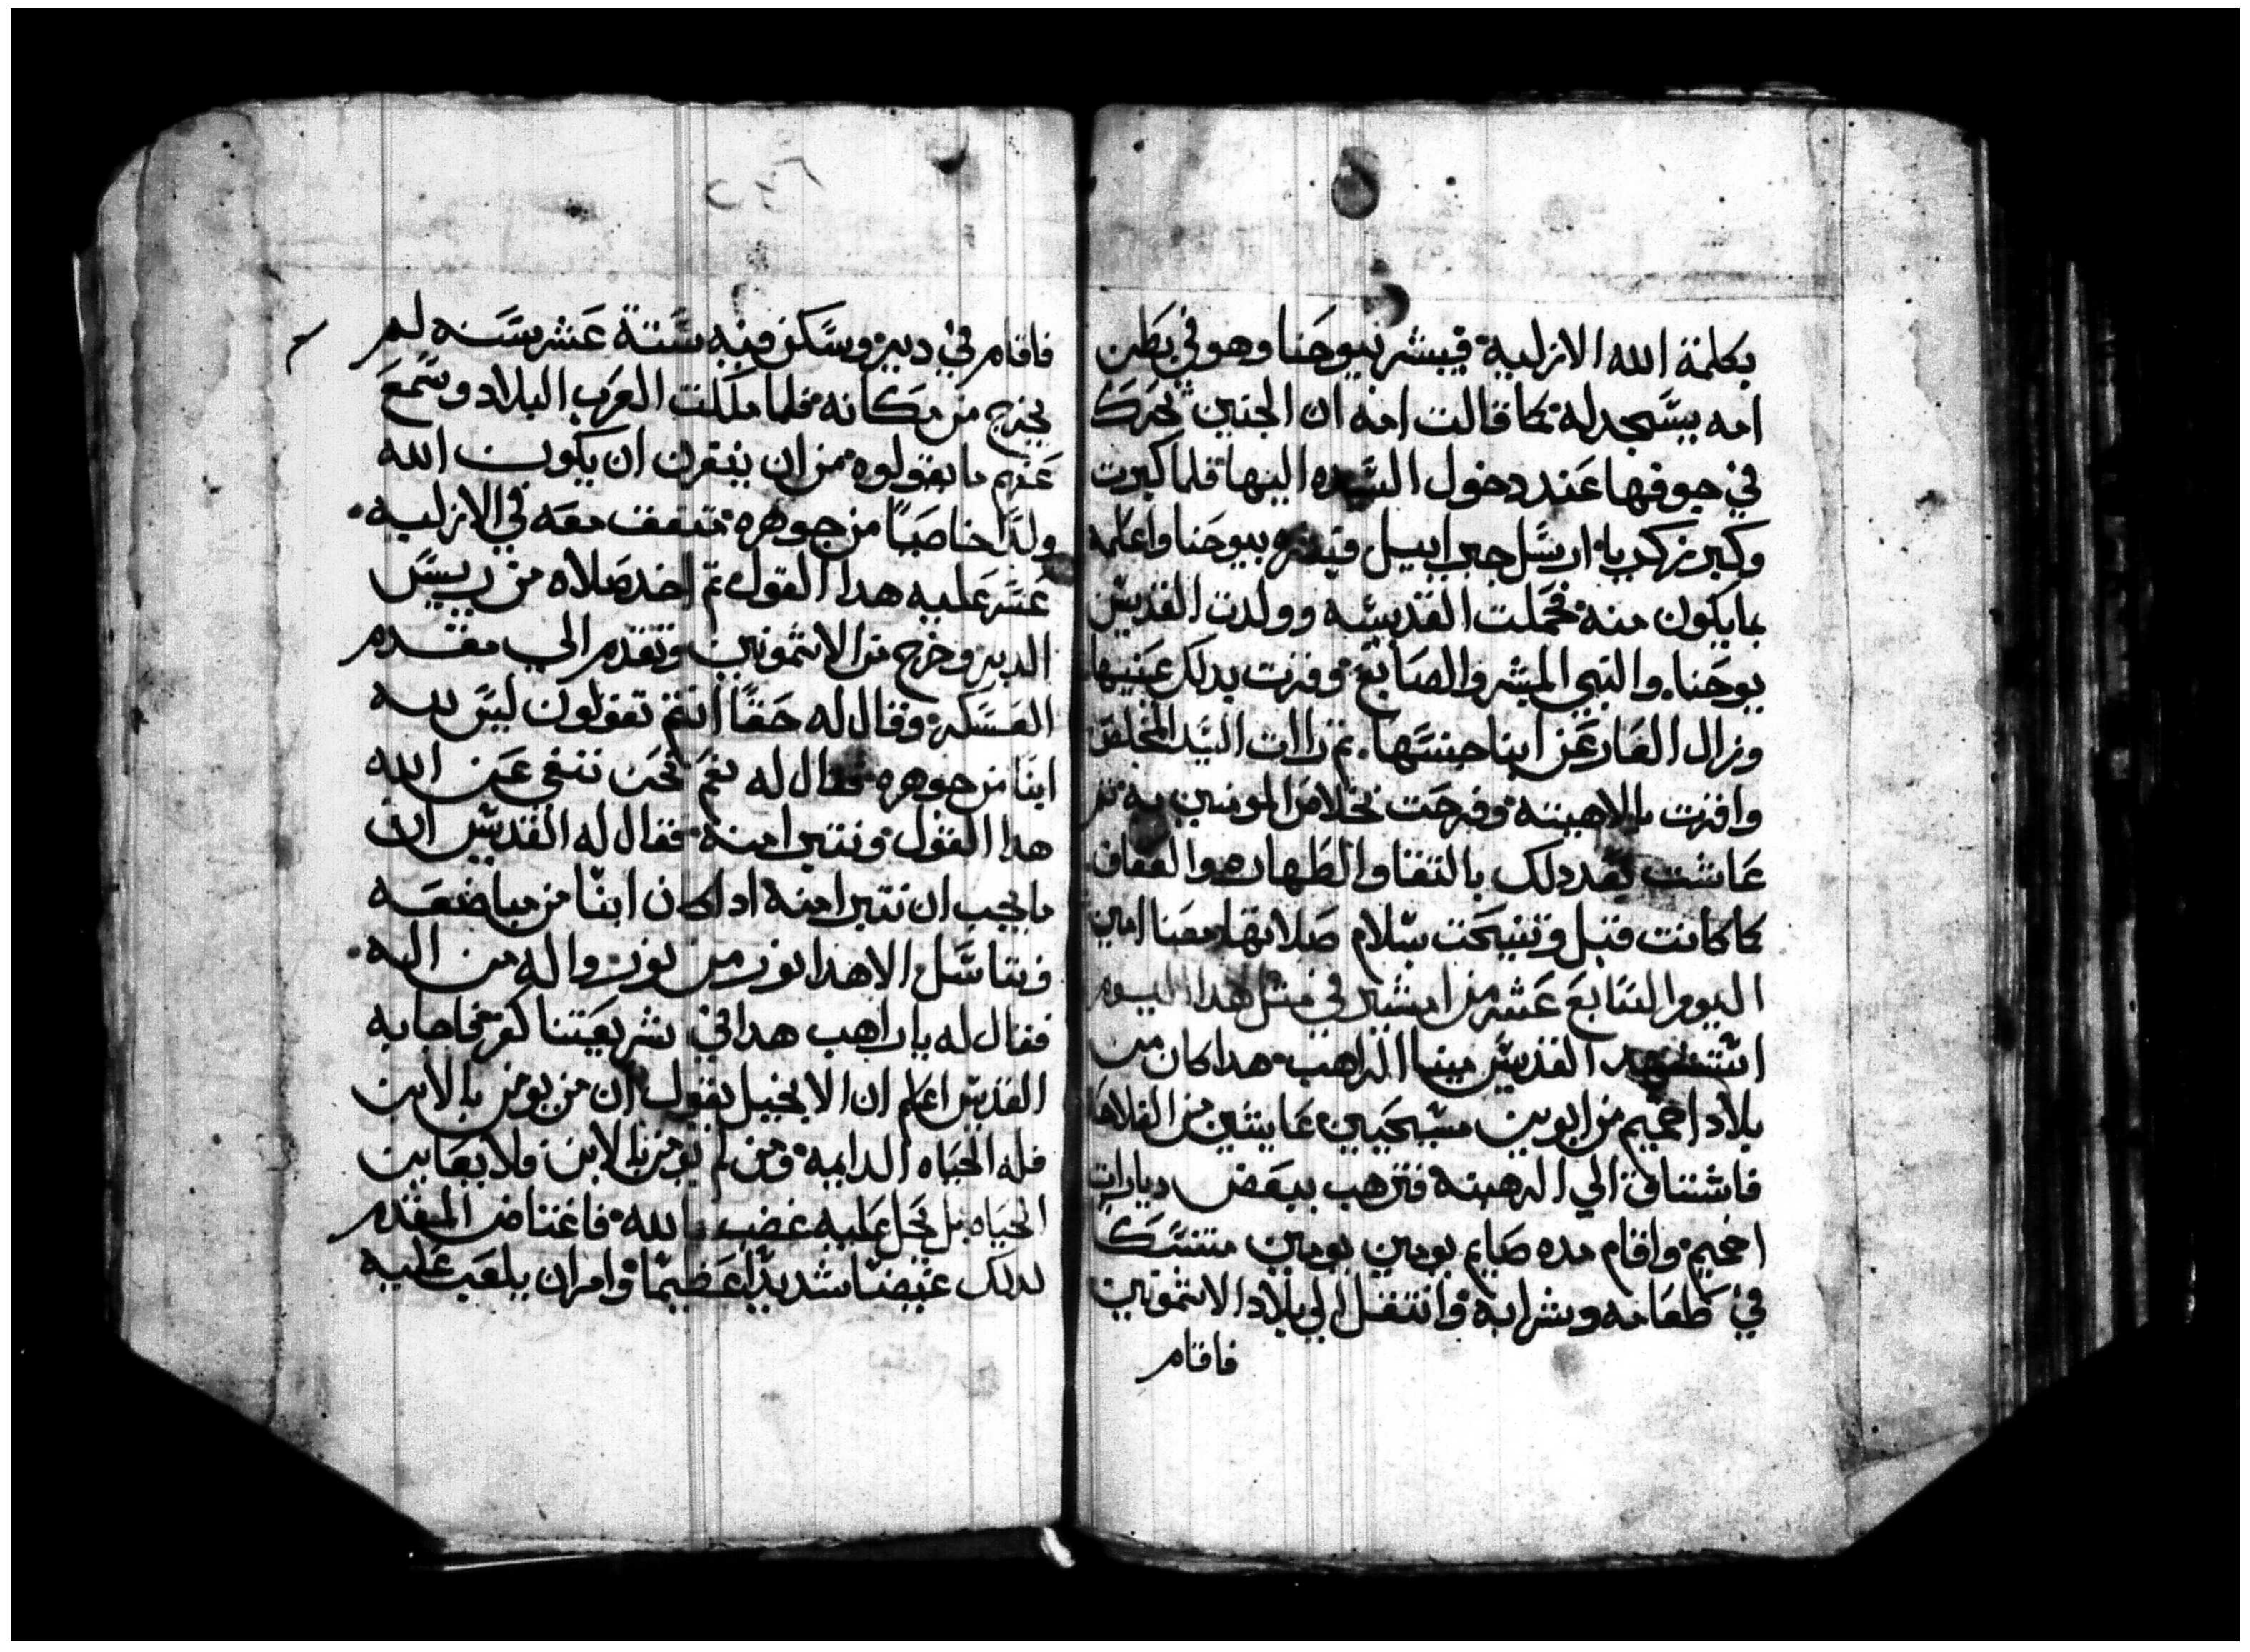 بكلمة الله الازليه فيبشر بيوحنا وهو في بطن
امه بيسجد له كما قالت امه ان الجنين تحرك
في جوفها عند دخول السيده اليها فلما كبرت
وكبر زكريا ارسل جبراييل فبشره بيوحنا واعلمه
بما يكون منه فحملت القديسه وولدت القديس
يوحنا والنبي المبشر والصابغ وقرت بدلك عينيها
وزال العار عن ابنا جنسها ثم راات السيد المخلص
واقرت بالاهيته وفرحت بخلاص المومنين به ثم
عاشت بعد دلك بالتقا والطهاره والعفاف
كما كانت قبل وتنيحت بسلام صلاتها معنا امين
اليوم السابع عشر من امشير في مثل هدا اليوم
استشهد القديس مينا الراهب هدا كان من
بلاد اخميم من ابوين مسيحيين عايشين من الفلاحا
فاشتاق الي الرهبنه فترهب ببعض ديارات
اخميم واقام مده صايم يومين يومين متنسك
في طعامه وشرابه وانتقل الي بلاد الاشمونين
فاقام
فاقام في دير وسكن فيه ستة عشر سنه لم
يخرج من مكانه فلما ملكت العرب البلاد وسمع
عنهم ما يقولوه من ان ينكرن ان يكون الله
ولدا خاصبا من جوهره متفقت معه في الازليه
عسر عليه هدا القول ثم اخد صلاه من رييس
الدير وخرج من الاشمونين وتقدم الي مقدم
العسكر وقال له حقا انتم تقولون ليس لله
ابنا من جوهره فقال له نعم نحن ننفي عن الله
هدا القول ونتبرا منه فقال له القديس ان
ما يجب ان نتبرا منه ادا كان ابنا من مباضعه
وبتناسل الا هدا نور من نور واله من اله
فقال له يا راهب هدا في شريعتنا كفر فاجابه
القديس اعلم ان الانجيل يقول ان من يومن بالابن
فله الحياه الدايمه ومن لم يومن بالابن فلا يعاين
الحياه بل يحل عليه غضب الله فاغتاض المقدم
لدلك غيضا شديدا عظيما وامر ان يلعب عليه